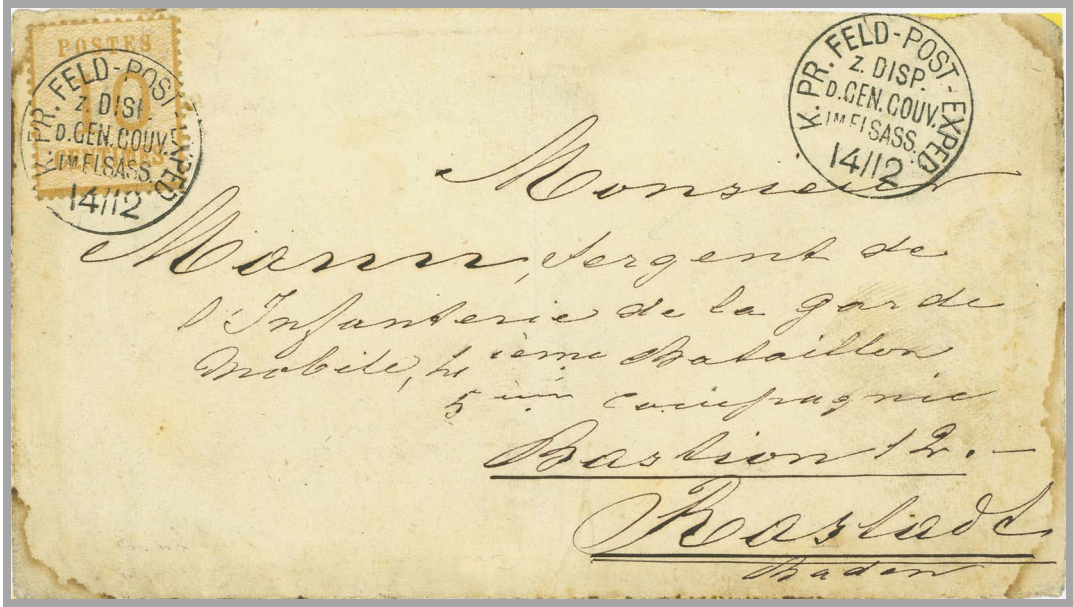 POSTES
10
CENTIMES
K. PR. FELD-POST-EXPED
Z. DISP.
D. GEN. GOUV.
IM ELSASS.
14/12
K. PR. FELD-POST-EXPED
Z. DISP.
D. GEN. GOUV.
IM ELSASS.
14/12
Monsieur
Mann, Sergent de
l'Infanterie de la garde
Mobile, 4 ième Bataillon
5 ième compagnie
Bastion 12.-
Rastadt
Baden